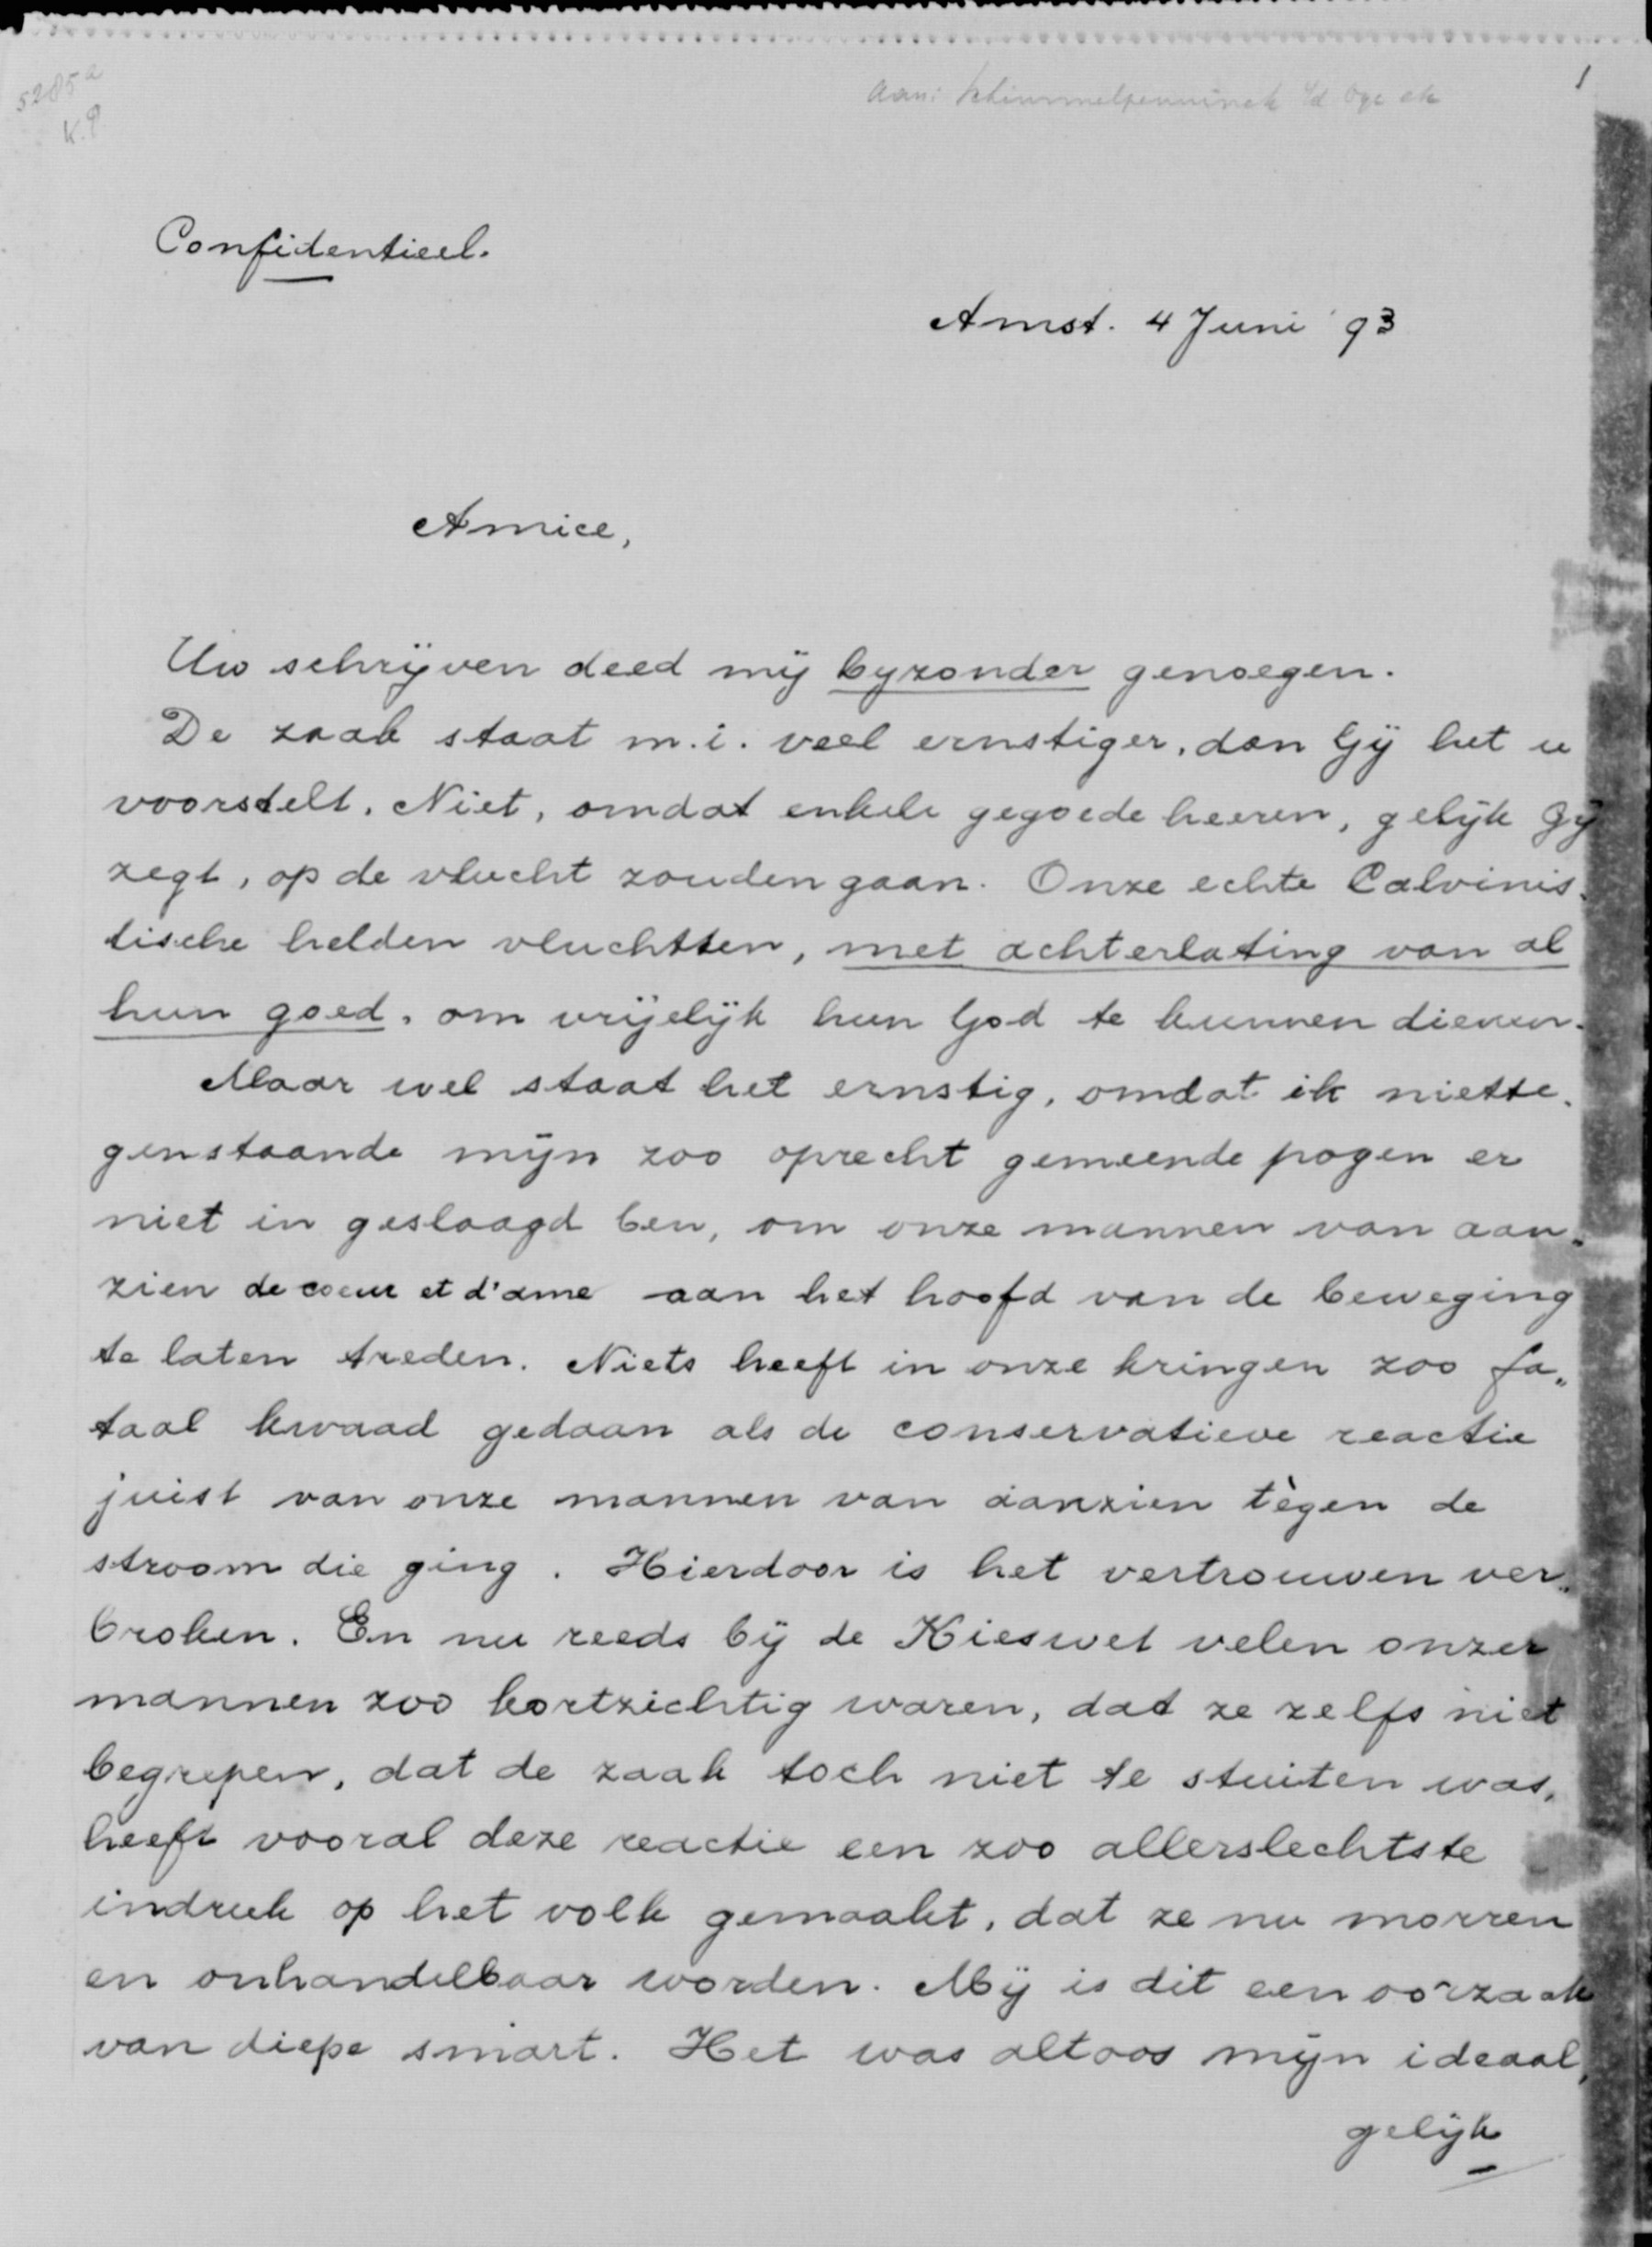 5285a
K.P.
Aan: Schimmelpenninck v/d Oye
1
Confidentieel.
Amst. 4 Juni '93
Amice,
Uw schrijven deed mij byzonder genoegen.
De zaak staat m.i. veel ernstiger, dan Gij het u
voorstelt. Niet, omdat enkele gegoede heeren, gelijk Gij
zegt, op de vlucht zouden gaan. Onze echte Calvinis-
tische helden vluchtten, met achterlating van al
hun goed, om vrijelijk hun God te kunnen dienen.
Maar wel staat het ernstig, omdat ik niette-
genstaande mijn zoo oprecht gemeende pogen er
niet in geslaagd ben, om onze mannen van aan-
zien de coeur et d'ame aan het hoofd van de beweging
te laten treden. Niets heeft in onze kringen zoo fa-
taal kwaad gedaan als de conservatieve reactie
juist van onze mannen van aanzien tègen de
stroom die ging. Hierdoor is het vertrouwen ver-
broken. En nu reeds bij de Kieswet velen onzer
mannen zoo kortzichtig waren, dat ze zelfs niet
begrepen, dat de zaak toch niet te stuiten was,
heeft vooral deze reactie een zoo allerslechtste
indruk op het volk gemaakt, dat ze nu morren
en onhandelbaar worden. Mij is dit een oorzaak
van diepe smart. Het was altoos mijn ideaal,
gelijk